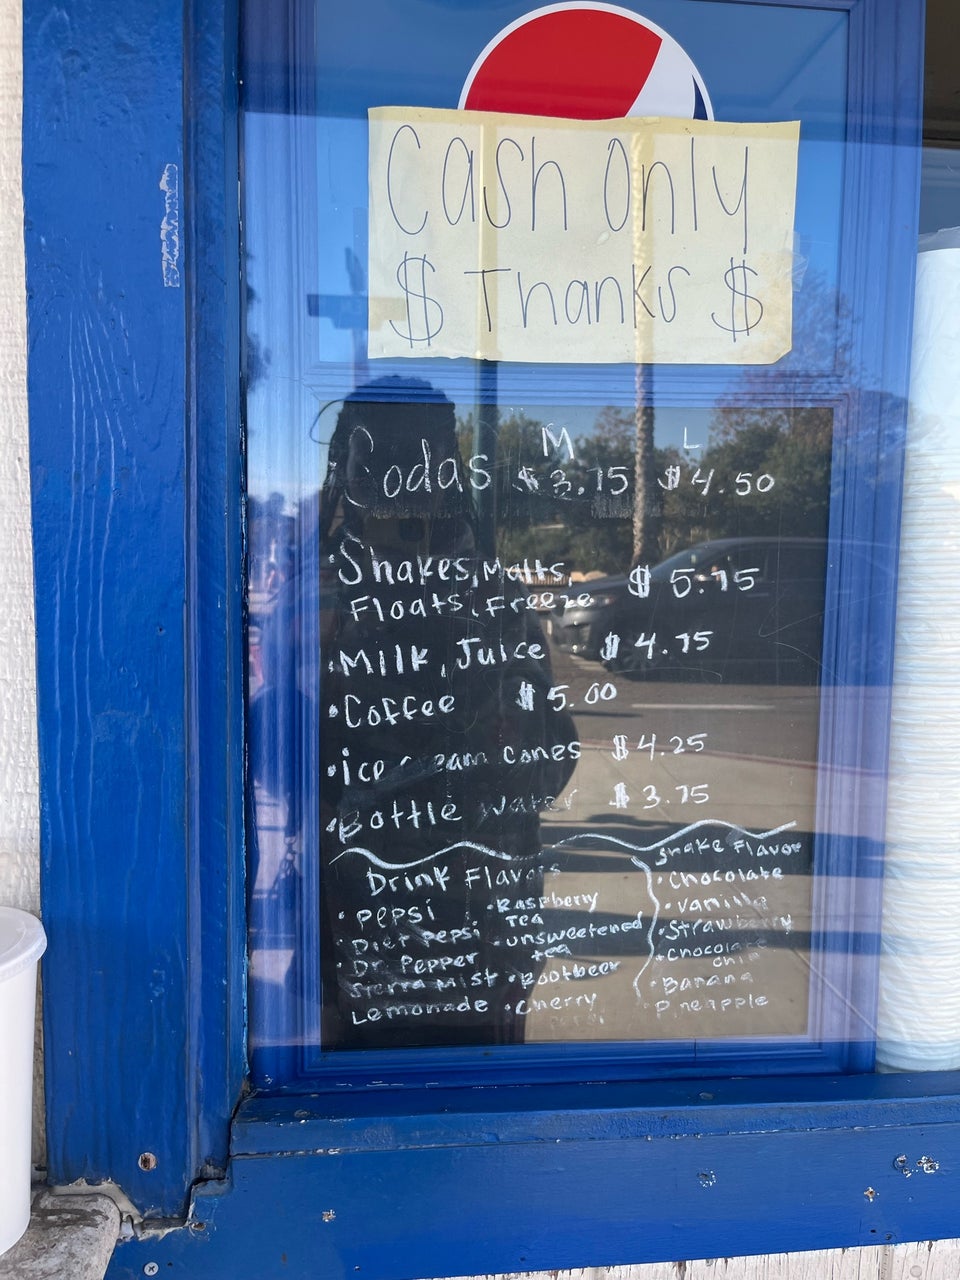 Cash Only
$ Thanks $
M L
Sodas $3.75 $4.50
• Shakes, Malts, $5.75
Floats, Freeze
• Milk, Juice $4.75
• Coffee $5.00
• ice cream cones $4.25
• Bottle water $3.75
Drink Flavors
• Pepsi
• Diet Pepsi
• Dr. Pepper
Sierra Mist
Lemonade
• Raspberry
Tea
• unsweetened
tea
• Rootbeer
• Cherry
Shake Flavor
• Chocolate
• Vanilla
• Strawberry
• Chocolate
chip
• Banana
Pineapple